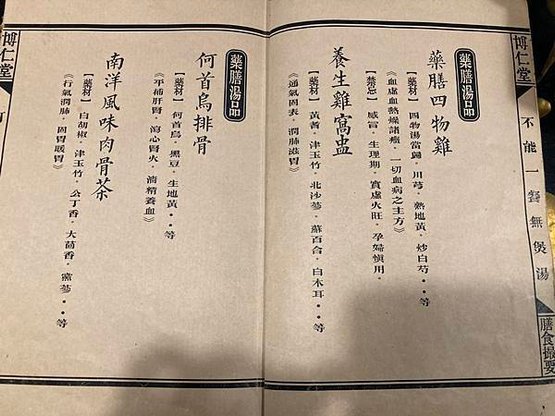 博仁堂
不能一餐無煲湯
膳食撮要
藥膳湯品
藥膳四物雞
【藥材】四物湯當歸．川芎．熱地黃．炒白芍．．等
《血虛血熱燥諸癥．一切血病之主方》
【禁忌】感冒．生理期．實虛火旺．孕婦慎用．
養生雞窩盅
【藥材】黃耆．津玉竹．北沙蔘．蘇百合．白木耳．．等
《通氣固表．潤肺滋胃》
藥膳湯品
何首烏排骨
【藥材】何首烏．黑豆．生地黃．．等
《平補肝腎．瀉心腎火．滴精養血》
南洋風味肉骨茶
【藥材】白胡椒．津玉竹．公丁香．大茴香．黨蔘．．等
《行氣潤肺．固胃暖胃》
博仁堂